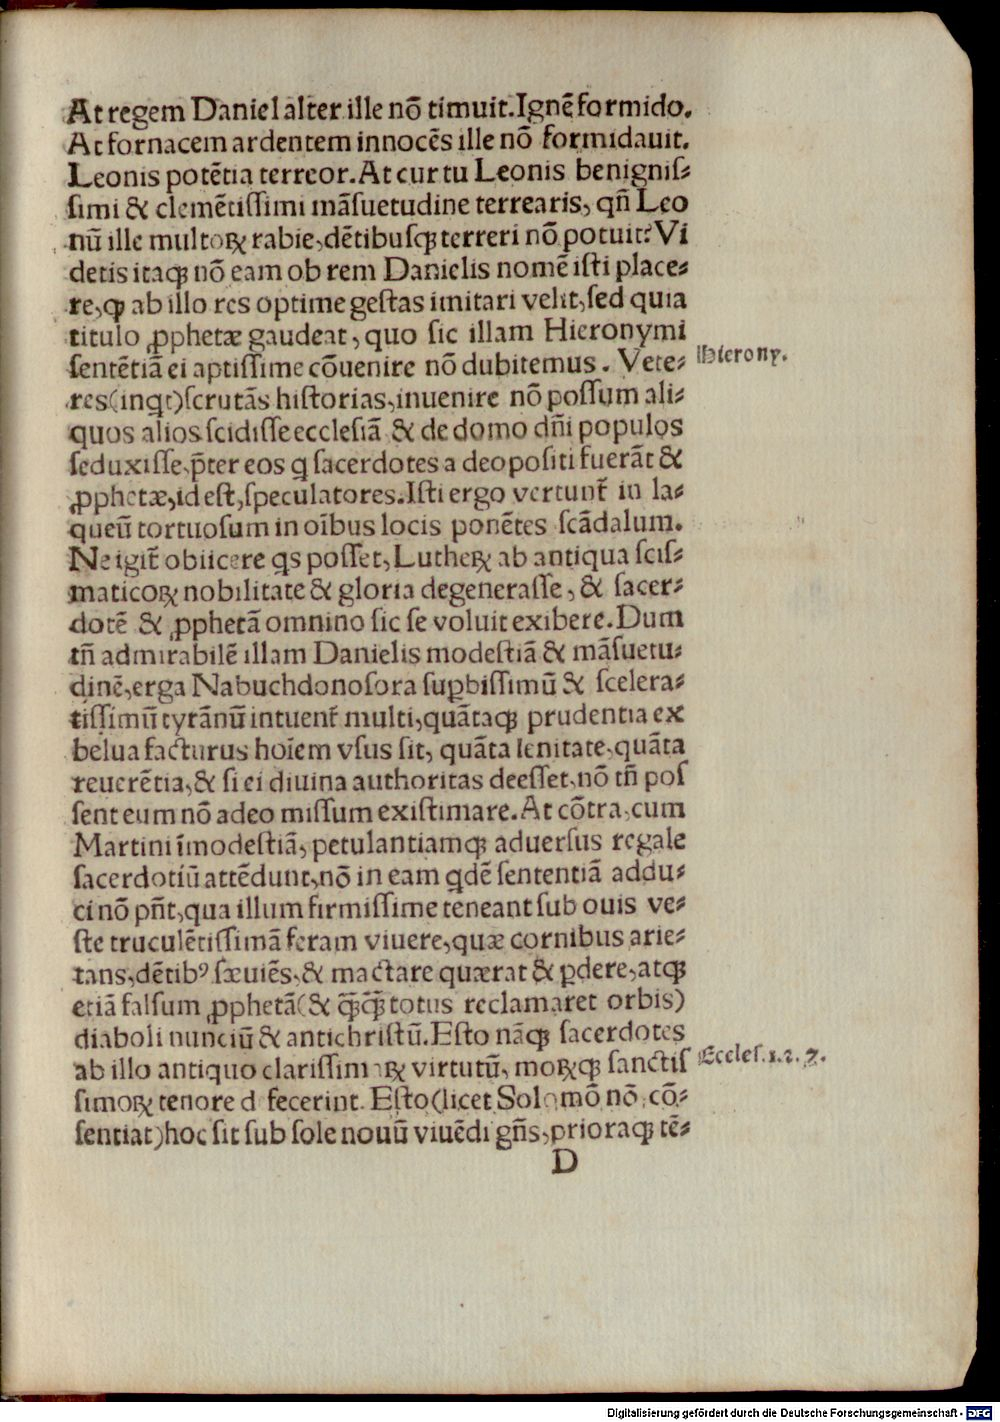 At regem Daniel alter ille nō timuit. Ignē formido.
At fornacem ardentem innocēs ille nō formidauit.
Leonis potētia terreor. At cur tu Leonis benignis⸗
ſimi & clemētiſſimi māſuetudine terrearis, qn̄ Leo
nū ille multoꝝ rabie, dētibuſꝗ terreri nō potuit? Vi
detis itaꝗ nō eam ob rem Danielis nomē iſti place⸗
re, ꝙ ab illo res optime geſtas imitari velit, ſed quia
titulo ꝓphetæ gaudeat, quo ſic illam Hieronymi
ſentētiā ei aptiſſime cōuenire nō dubitemus. Vete⸗
Hierony.
res (inqt) ſcrutās hiſtorias, inuenire nō poſſum ali⸗
quos alios ſcidiſſe eccleſiā & de domo dn̄i populos
ſeduxiſſe, p̄ter eos q ſacerdotes a deo poſiti fuerāt &
ꝓphetæ, id eſt, ſpeculatores. Iſti ergo vertunt̄ in la⸗
queū tortuoſum in oībus locis ponētes ſcādalum.
Ne igit̄ obiicere qs poſſet, Lutheꝝ ab antiqua ſciſ⸗
maticoꝝ nobilitate & gloria degeneraſſe, & ſacer⸗
dotē & ꝓphetā omnino ſic ſe voluit exibere. Dum
tn̄ admirabilē illam Danielis modeſtiā & māſuetu⸗
dinē, erga Nabuchdonoſora ſuꝑbiſſimū & ſcelera⸗
tiſſimū tyrānū intuent̄ multi, quātaꝗ prudentia ex
belua facturus hoīem vſus ſit, quāta lenitate, quāta
reuerētia, & ſi ei diuina authoritas deeſſet, nō tn̄ poſ
ſent eum nō adeo miſſum exiſtimare. At cōtra, cum
Martini īmodeſtiā, petulantiamꝗ aduerſus regale
ſacerdotiū attēdunt, nō in eam qdē ſententiā addu⸗
ci nō pn̄t, qua illum firmiſſime teneant ſub ouis ve⸗
ſte truculētiſſimā feram viuere, quæ cornibus arie⸗
tans, dētibꝰ ſæuiēs, & mactare quærat & ꝑdere, atꝗ
etiā falſum ꝓphetā (& ꝗ̄ꝗ̄ totus reclamaret orbis)
diaboli nunciū & antichriſtū. Eſto nāꝗ ſacerdotes
ab illo antiquo clariſſimaꝝ virtutū, moꝝꝗ ſanctiſ
Eccleſ. 1. 2. 7.
ſimoꝝ tenore d fecerint. Eſto (licet Solomō nō cō⸗
ſentiat) hoc ſit ſub ſole nouū viuēdi gn̄s, prioraꝗ tē⸗
D
Digitalisierung gefördert durch die Deutsche Forschungsgemeinschaft - DFG